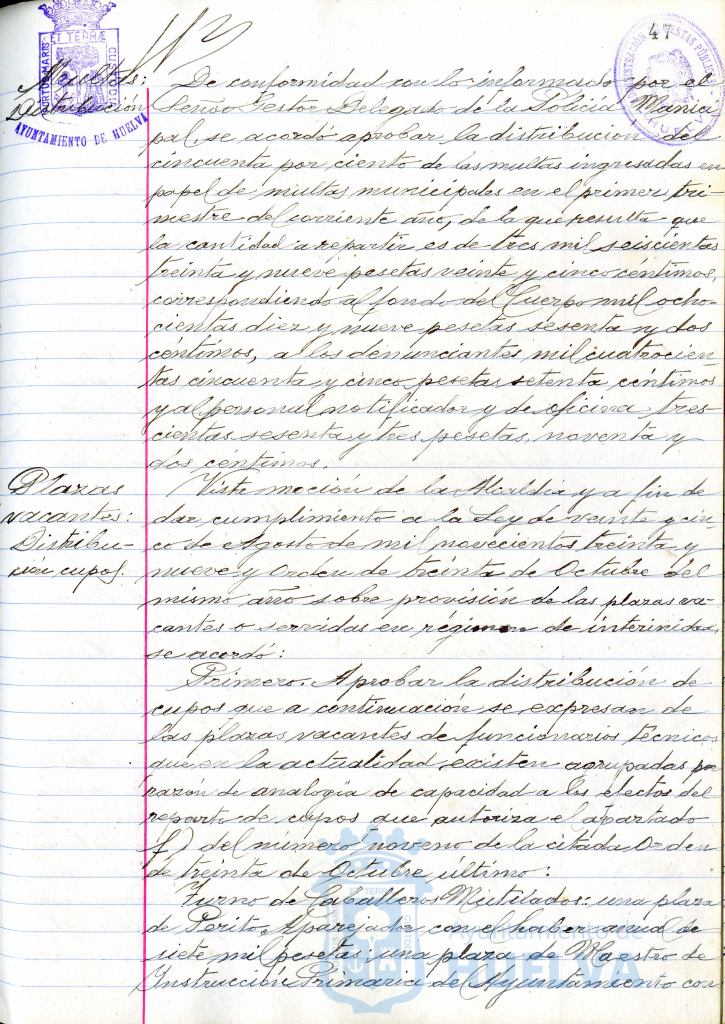 47
ET TERRÆ
PORTUS MARIS
CUSTODIA
AYUNTAMIENTO DE HUELVA
Multas:
Distribución
De conformidad con lo informado por el
Señor Gestor Delegado de la Policía Munici
pal, se acordó aprobar la distribución del
cincuenta por ciento de las multas ingresadas en
papel de multas municipales en el primer tri-
mestre del corriente año, de la que resulta que
la cantidad a repartir es de tres mil seiscientas
treinta y nueve pesetas veinte y cinco céntimos,
correspondiendo al fondo del Cuerpo mil ocho-
cientas diez y nueve pesetas sesenta y dos
céntimos, a los denunciantes mil cuatrocien-
tas cincuenta y cinco pesetas setenta céntimos
y al personal notificador y de oficina tres-
cientas sesenta y tres pesetas, noventa y
dos céntimos.
Plazas
vacantes:
Distribu-
ción cupos.
Vista moción de la Alcaldía y a fin de
dar cumplimiento a la Ley de veinte y cin-
co de Agosto de mil novecientos treinta y
nueve y Orden de treinta de Octubre del
mismo año sobre provisión de las plazas va-
cantes o servidas en régimen de interinidad,
se acordó:
Primero. Aprobar la distribución de
cupos que a continuación se expresan de
las plazas vacantes de funcionarios técnicos
que en la actualidad existen agrupadas por
razón de analogía de capacidad a los efectos del
reparto de cupos que autoriza el apartado
f) del número noveno de la citada Orden
de treinta de Octubre último:
Turno de Caballeros Mutilados: una plaza
de Perito Aparejador con el haber anual de
siete mil pesetas; una plaza de Maestro de
Instrucción Primaria de Ayuntamiento con
Ayuntamiento de
HUELVA